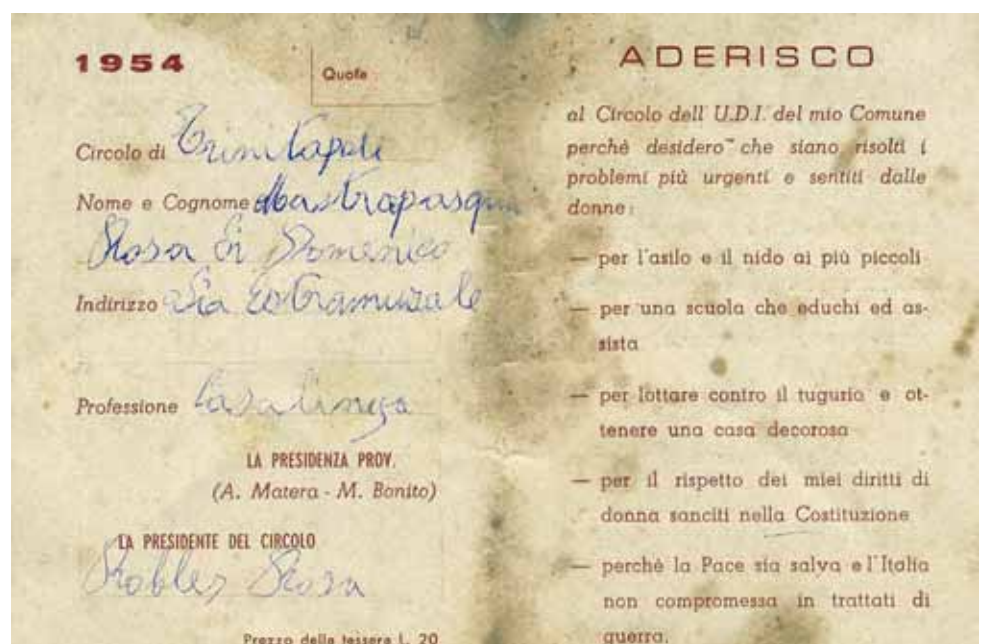 1954
Quota
Circolo di Trinitapoli
Nome e Cognome Mastrapasqua
Rosa Di Domenico
Indirizzo Via Extramurale
Professione Casalinga
LA PRESIDENZA PROV.
(A. Matera - M. Bonito)
LA PRESIDENTE DEL CIRCOLO
Robles Rosa
Prezzo della tessera L. 20
ADERISCO
al Circolo dell' U.D.I. del mio Comune
perchè desidero che siano risolti i
problemi più urgenti e sentiti dalle
donne:
— per l'asilo e il nido ai più piccoli
— per una scuola che educhi ed as-
sista
— per lottare contro il tugurio e ot-
tenere una casa decorosa
— per il rispetto dei miei diritti di
donna sanciti nella Costituzione
— perchè la Pace sia salva e l'Italia
non compromessa in trattati di
guerra.